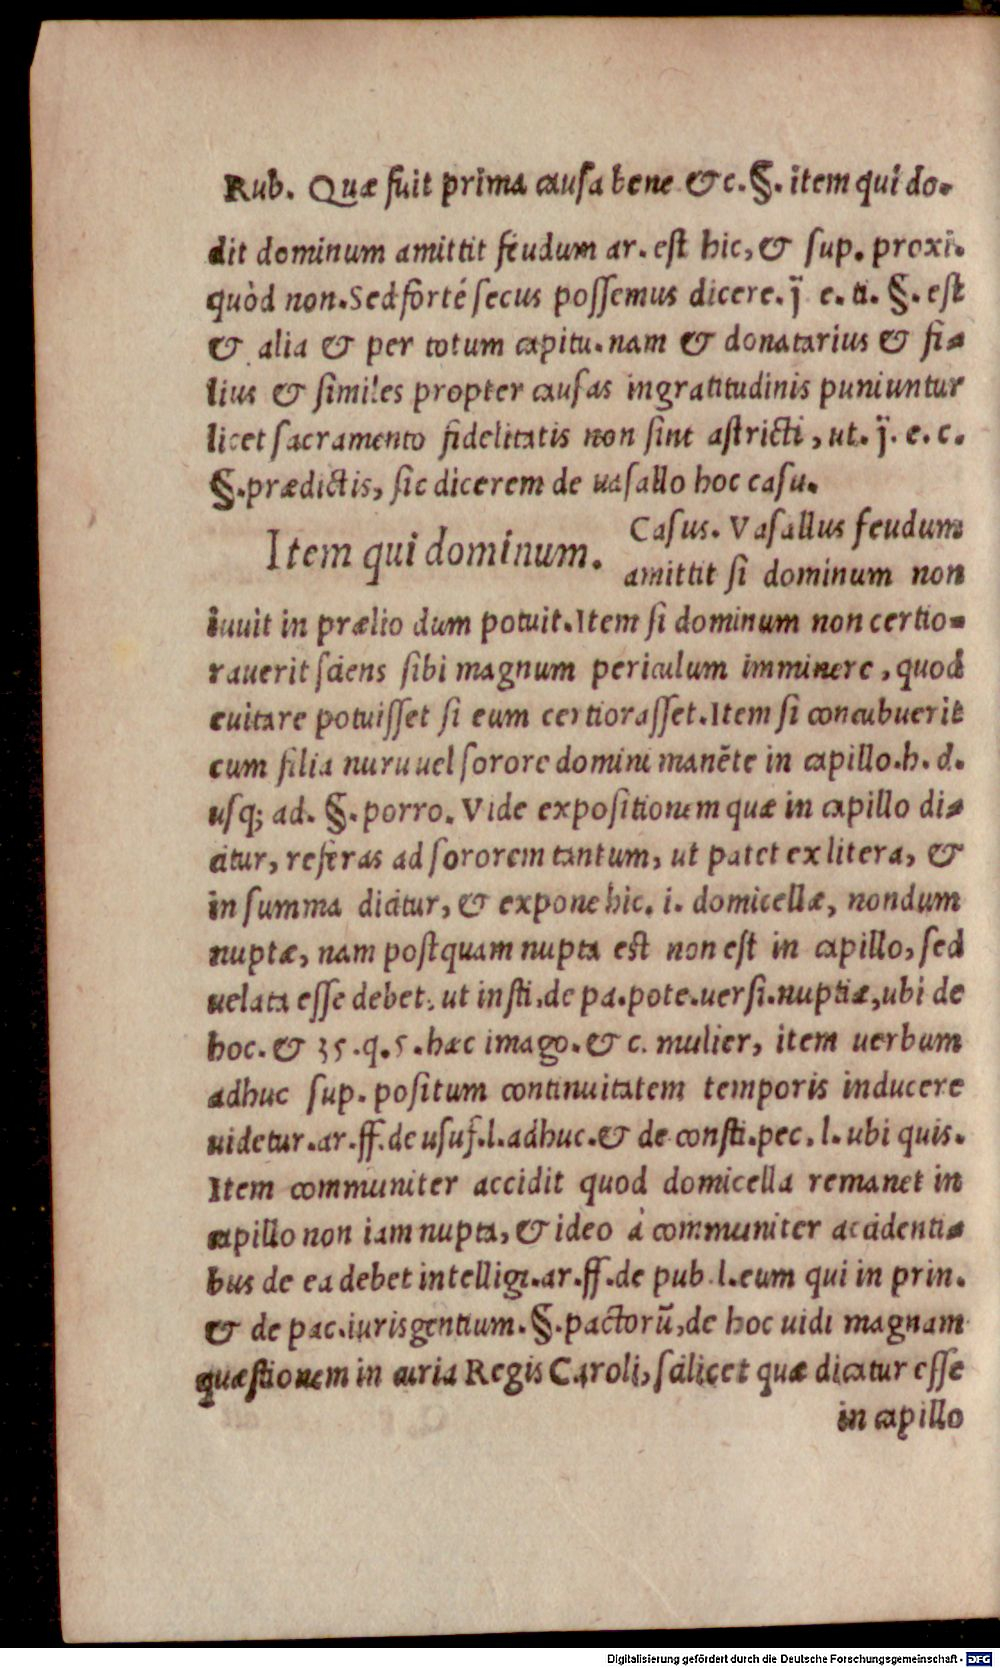 Rub. Quæ fuit prima causa bene &c. §. item qui do-
dit dominum amittit feudum ar. est hic, & sup. proxi.
quòd non. Sed forté secus possemus dicere. j̈ e. ti. §. est
& alia & per totum capitu. nam & donatarius & fi-
lius & similes propter causas ingratitudinis puniuntur
licet sacramento fidelitatis non sint astricti, ut. j̈. e. c.
§. prædictis, sic dicerem de uasallo hoc casu.
Item qui dominum. Casus. Vasallus feudum
amittit si dominum non
iuuit in prælio dum potuit. Item si dominum non certio-
rauerit sciens sibi magnum periculum imminere, quod
euitare potuisset si eum certiorasset. Item si concubuerit
cum filia nuru uel sorore domini manẽte in capillo. h. d.
usq; ad. §. porro. Vide expositionem quæ in capillo di-
citur, referas ad sororem tantum, ut patet ex litera, &
in summa dicitur, & expone hic. i. domicellæ, nondum
nuptæ, nam postquam nupta est non est in capillo, sed
uelata esse debet. ut insti. de pa. pote. uersi. nuptiæ, ubi de
hoc. & 35. q. 5. hæc imago. & c. mulier, item uerbum
adhuc sup. positum continuitatem temporis inducere
uidetur. ar. ff. de usuf. l. adhuc. & de consti. pec. l. ubi quis.
Item communiter accidit quod domicella remanet in
capillo non iam nupta, & ideo à communiter accidenti-
bus de ea debet intelligi. ar. ff. de pub l. eum qui in prin.
& de pac. iurisgentium. §. pactorũ, de hoc uidi magnam
quæstionem in curia Regis Caroli, scilicet quæ dicatur esse
in capillo
Digitalisierung gefördert durch die Deutsche Forschungsgemeinschaft - DFG